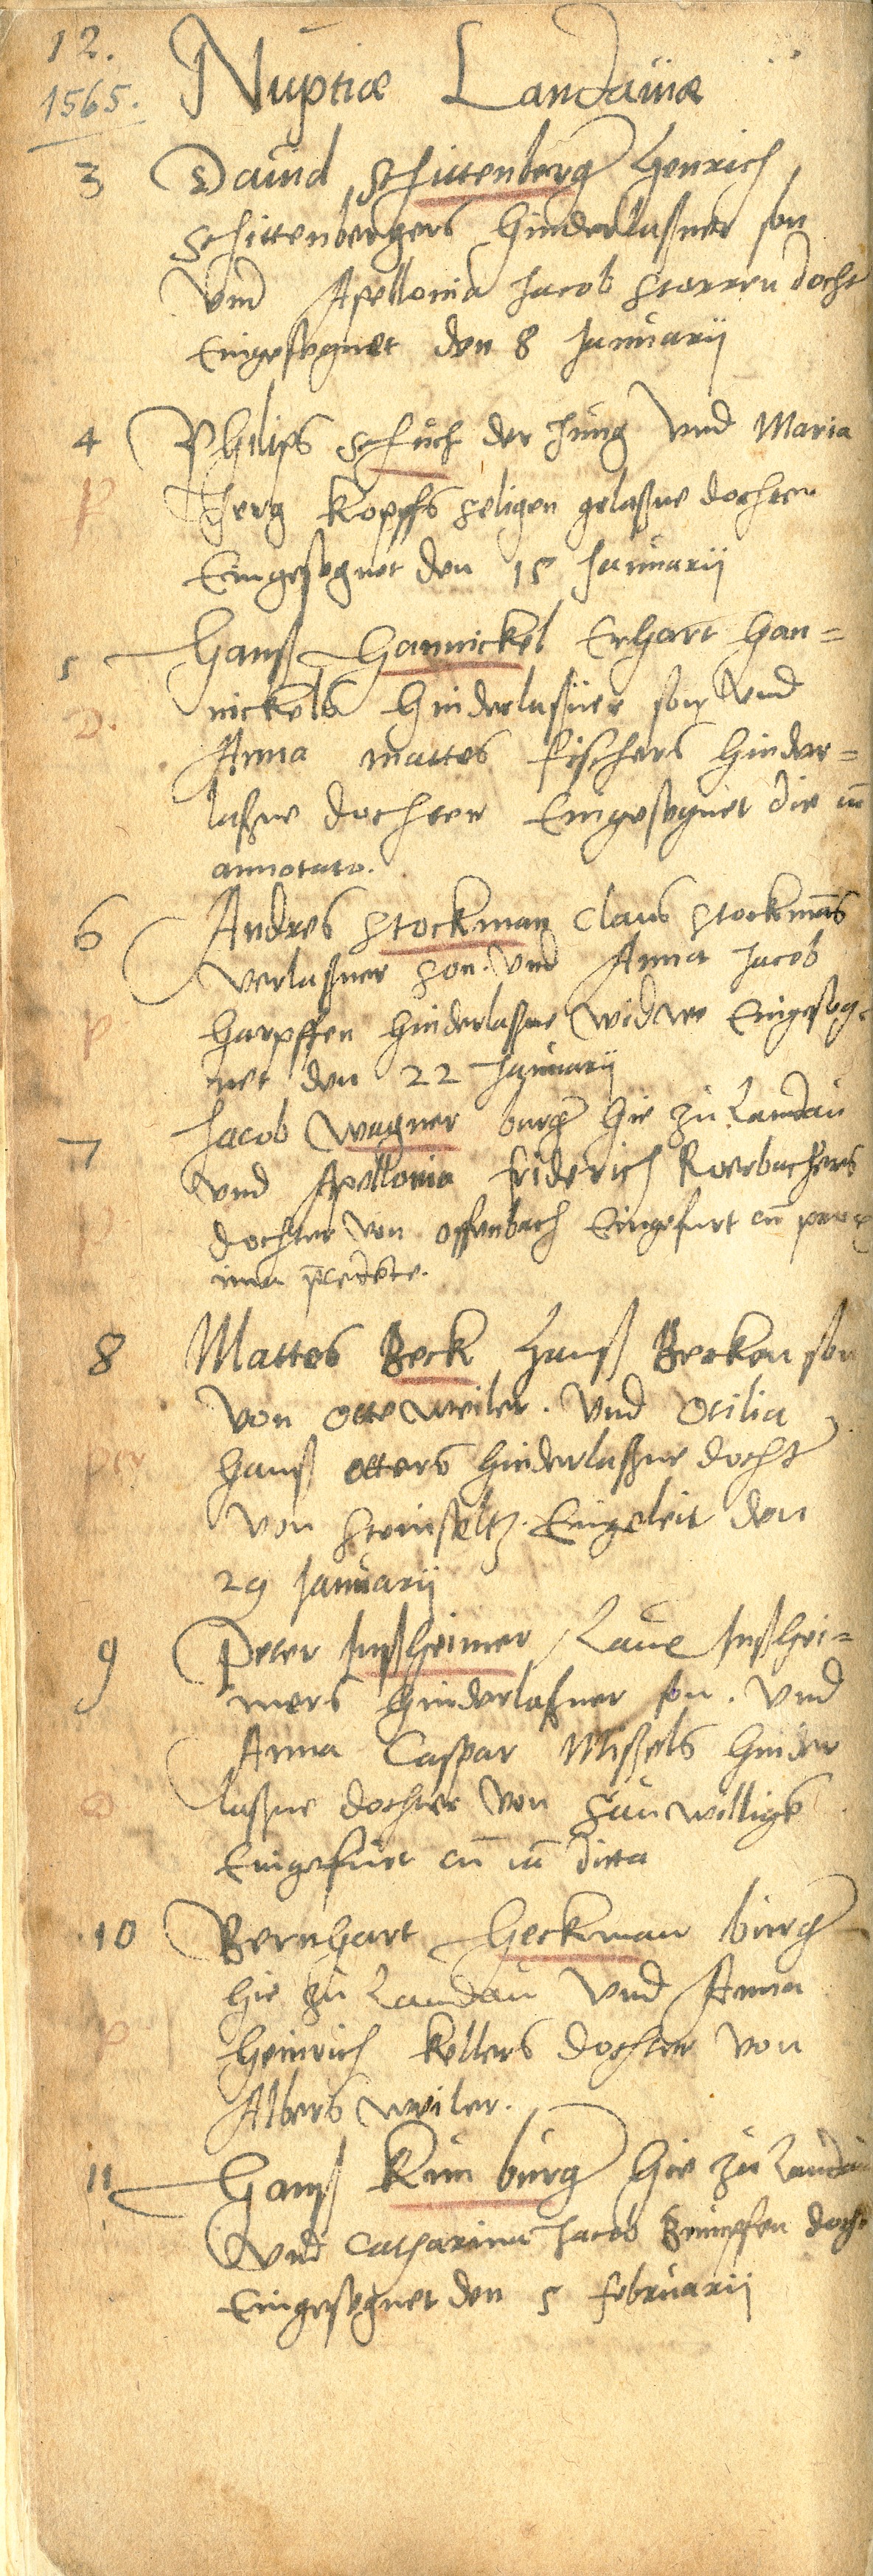 12.
1565.
Nuptiæ Landauiæ
3 Dauid Schittenberger Henrich
Schittenbergers hinderlaßner son
vnd Apellonia Jacob Storren docht
Eingesegnet den 8 Januarij
4 Philips Schuch der Jung vnd Maria
P Jerg Kopffs seligen gelaßne dochter
Eingesegnet den 15 Januarij
5 Hanß Hannickel Erhart Han=
D. nickels hinderlaßner son vnd
Anna Mattes Fischers hinder=
laßne dochter Eingesegnet die ut
annotato.
6 Andres Stockman Claus Stockmans
verlaßner son. vnd Anna Jacob
P Harpffen hinderlaßne Widwe Eingeseg=
net den 22 Januarij
7 Jacob Wagner burger hie zu Landau
vnd Apellonia Friderich Roerbachers
P dochter von Offenbach Eingefurt cum prox
ima precedente.
8 Mattes Beck Hanß Becken son
von Otteweiler. vnd Otilia
per Hanß Otters hinderlaßne docht
von Steinseltz. Eingeleit den
29 Januarij
9 Peter Inßheimer Laux Inßhei=
mers hinderlaßner son. vnd
Anna Caspar Mißels hinder
D laßne dochter von
Eingefurt cum iam dicta
10 Bernhart Heckman burger
hie zu Landau vnd Anna
P Heinrich Kellers dochter von
Albersweiler.
11 Hanß Kun burger hie zu Landau
vnd Catharina Jacob docht
Eingesegnet den 5 Februarij